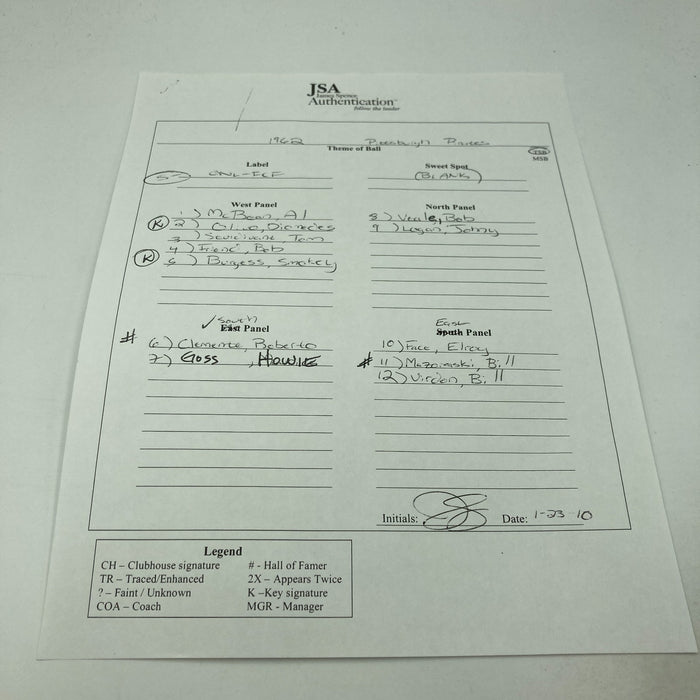 JSA
James Spence
Authentication™
follow the leader
1962 Pittsburgh Pirates
Theme of Ball
TSB
MSB
Label
ONL-FCF
Sweet Spot
(BLANK)
West Panel
1) McBean, Al
K 2) Olivo, Diomedes
3) Sturdivant, Tom
4) Friend, Bob
K 5) Burgess, Smokey
North Panel
8) Veale, Bob
9) Logan, Johny
✓ South
East Panel
# 6) Clemente, Roberto
7) Goss, Howie
East
South Panel
10) Face, Elroy
# 11) Mazeroski, Bill
12) Virdon, Bill
Initials: Date: 1-23-10
Legend
CH – Clubhouse signature # - Hall of Famer
TR – Traced/Enhanced 2X – Appears Twice
? – Faint / Unknown K –Key signature
COA – Coach MGR - Manager